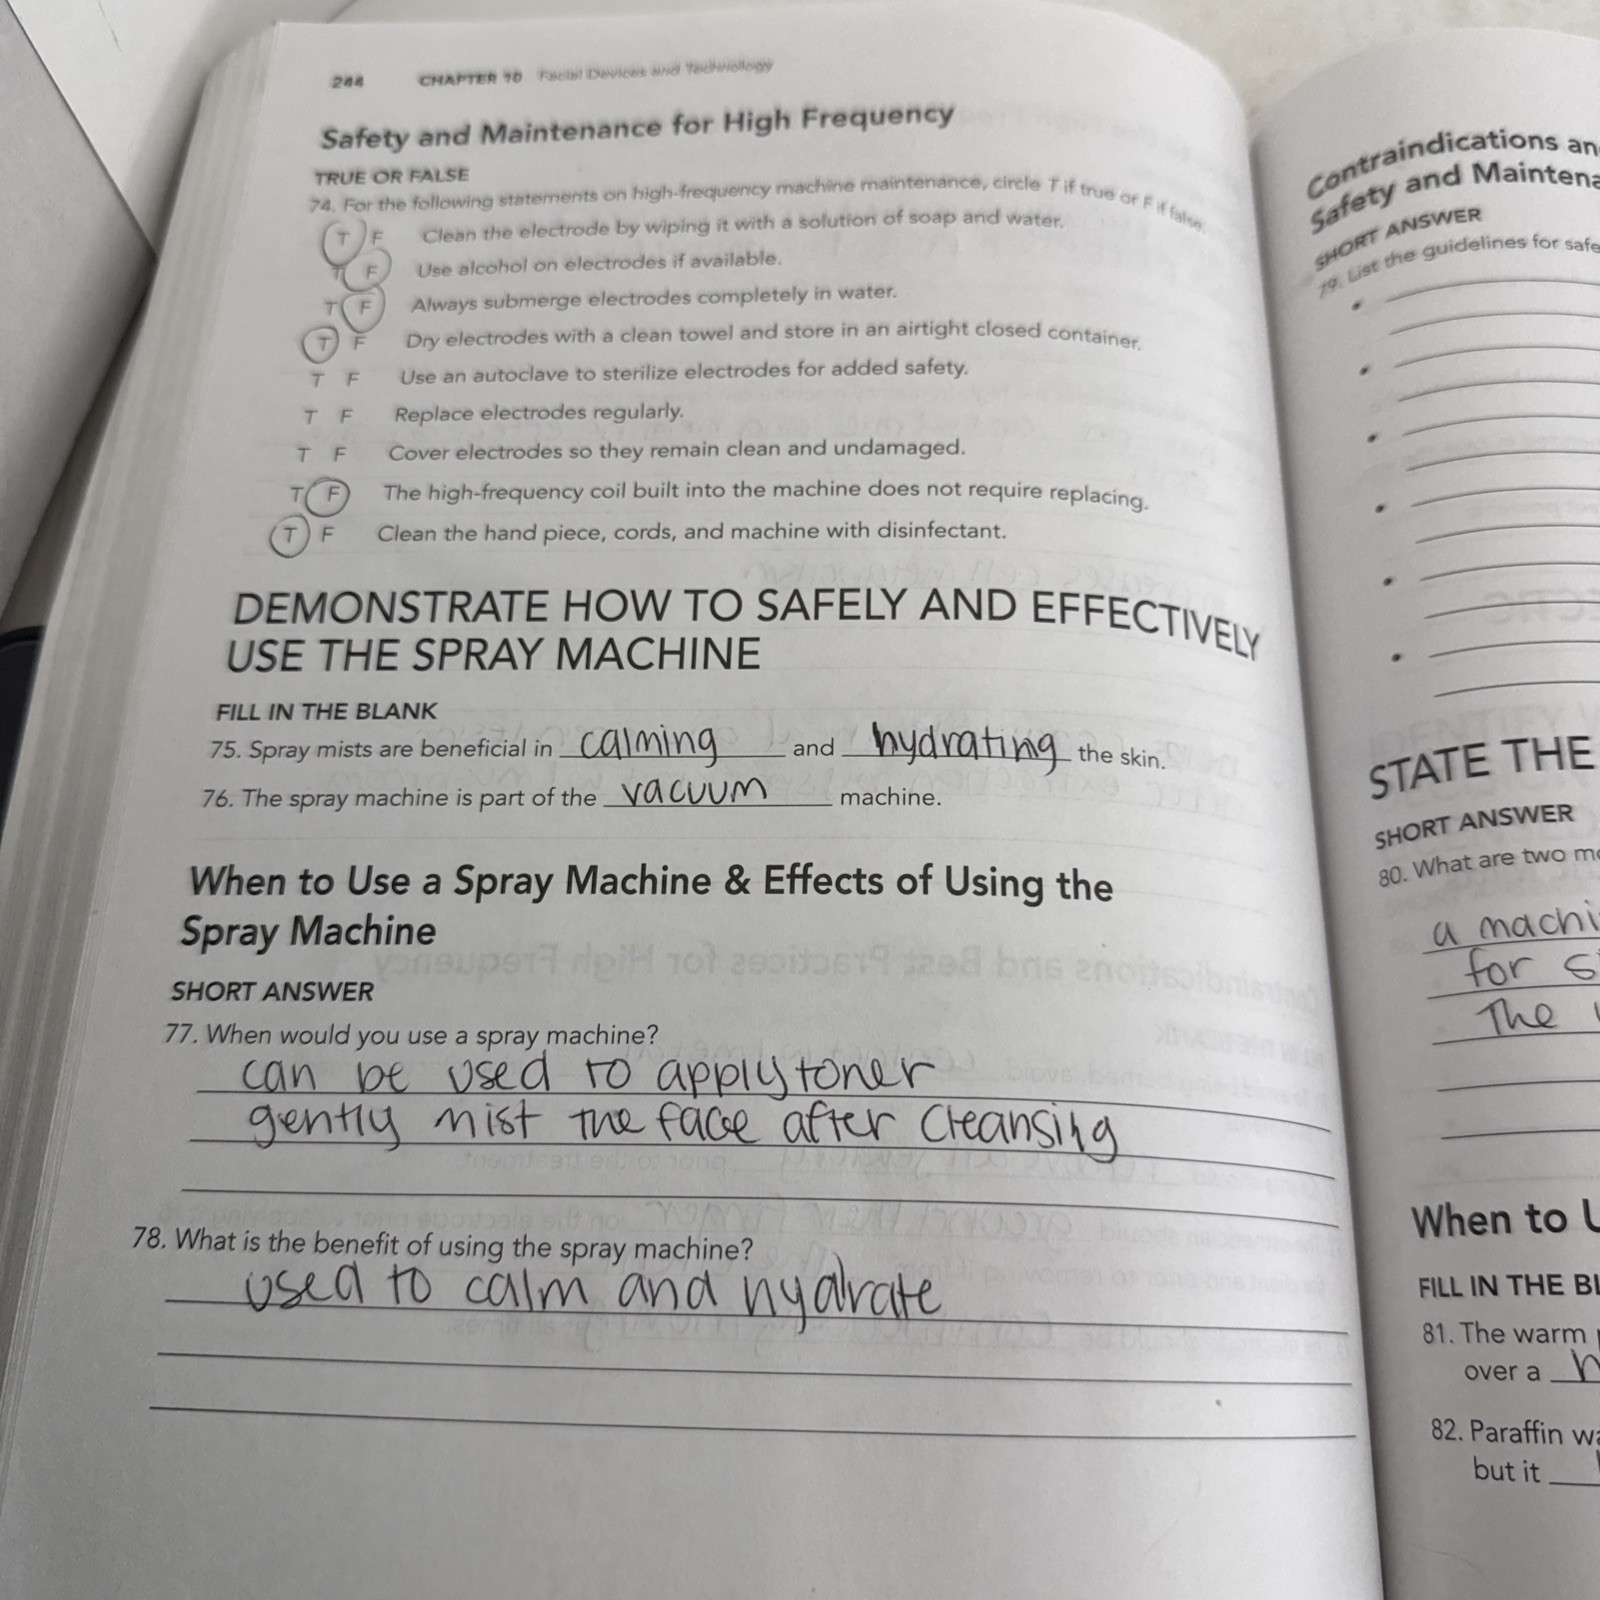 244 CHAPTER 10 Facial Devices and Technology
Safety and Maintenance for High Frequency
TRUE OR FALSE
74. For the following statements on high-frequency machine maintenance, circle T if true or F if false.
T F Clean the electrode by wiping it with a solution of soap and water.
T F Use alcohol on electrodes if available.
T F Always submerge electrodes completely in water.
T F Dry electrodes with a clean towel and store in an airtight closed container.
T F Use an autoclave to sterilize electrodes for added safety.
T F Replace electrodes regularly.
T F Cover electrodes so they remain clean and undamaged.
T F The high-frequency coil built into the machine does not require replacing.
T F Clean the hand piece, cords, and machine with disinfectant.
DEMONSTRATE HOW TO SAFELY AND EFFECTIVELY
USE THE SPRAY MACHINE
FILL IN THE BLANK
75. Spray mists are beneficial in calming and hydrating the skin.
76. The spray machine is part of the vacuum machine.
When to Use a Spray Machine & Effects of Using the
Spray Machine
SHORT ANSWER
77. When would you use a spray machine?
can be used to apply toner
gently mist the face after cleansing
78. What is the benefit of using the spray machine?
used to calm and hydrate
Contraindications an
Safety and Maintena
SHORT ANSWER
79. List the guidelines for safe
STATE THE
SHORT ANSWER
80. What are two mo
a machi
for s
The
When to U
FILL IN THE BL
81. The warm p
over a h
82. Paraffin wa
but it